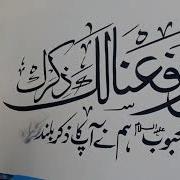 رفعنا لك ذكرك
محبوب علیہ السلام ہم نے آپ کا ذکر بلند